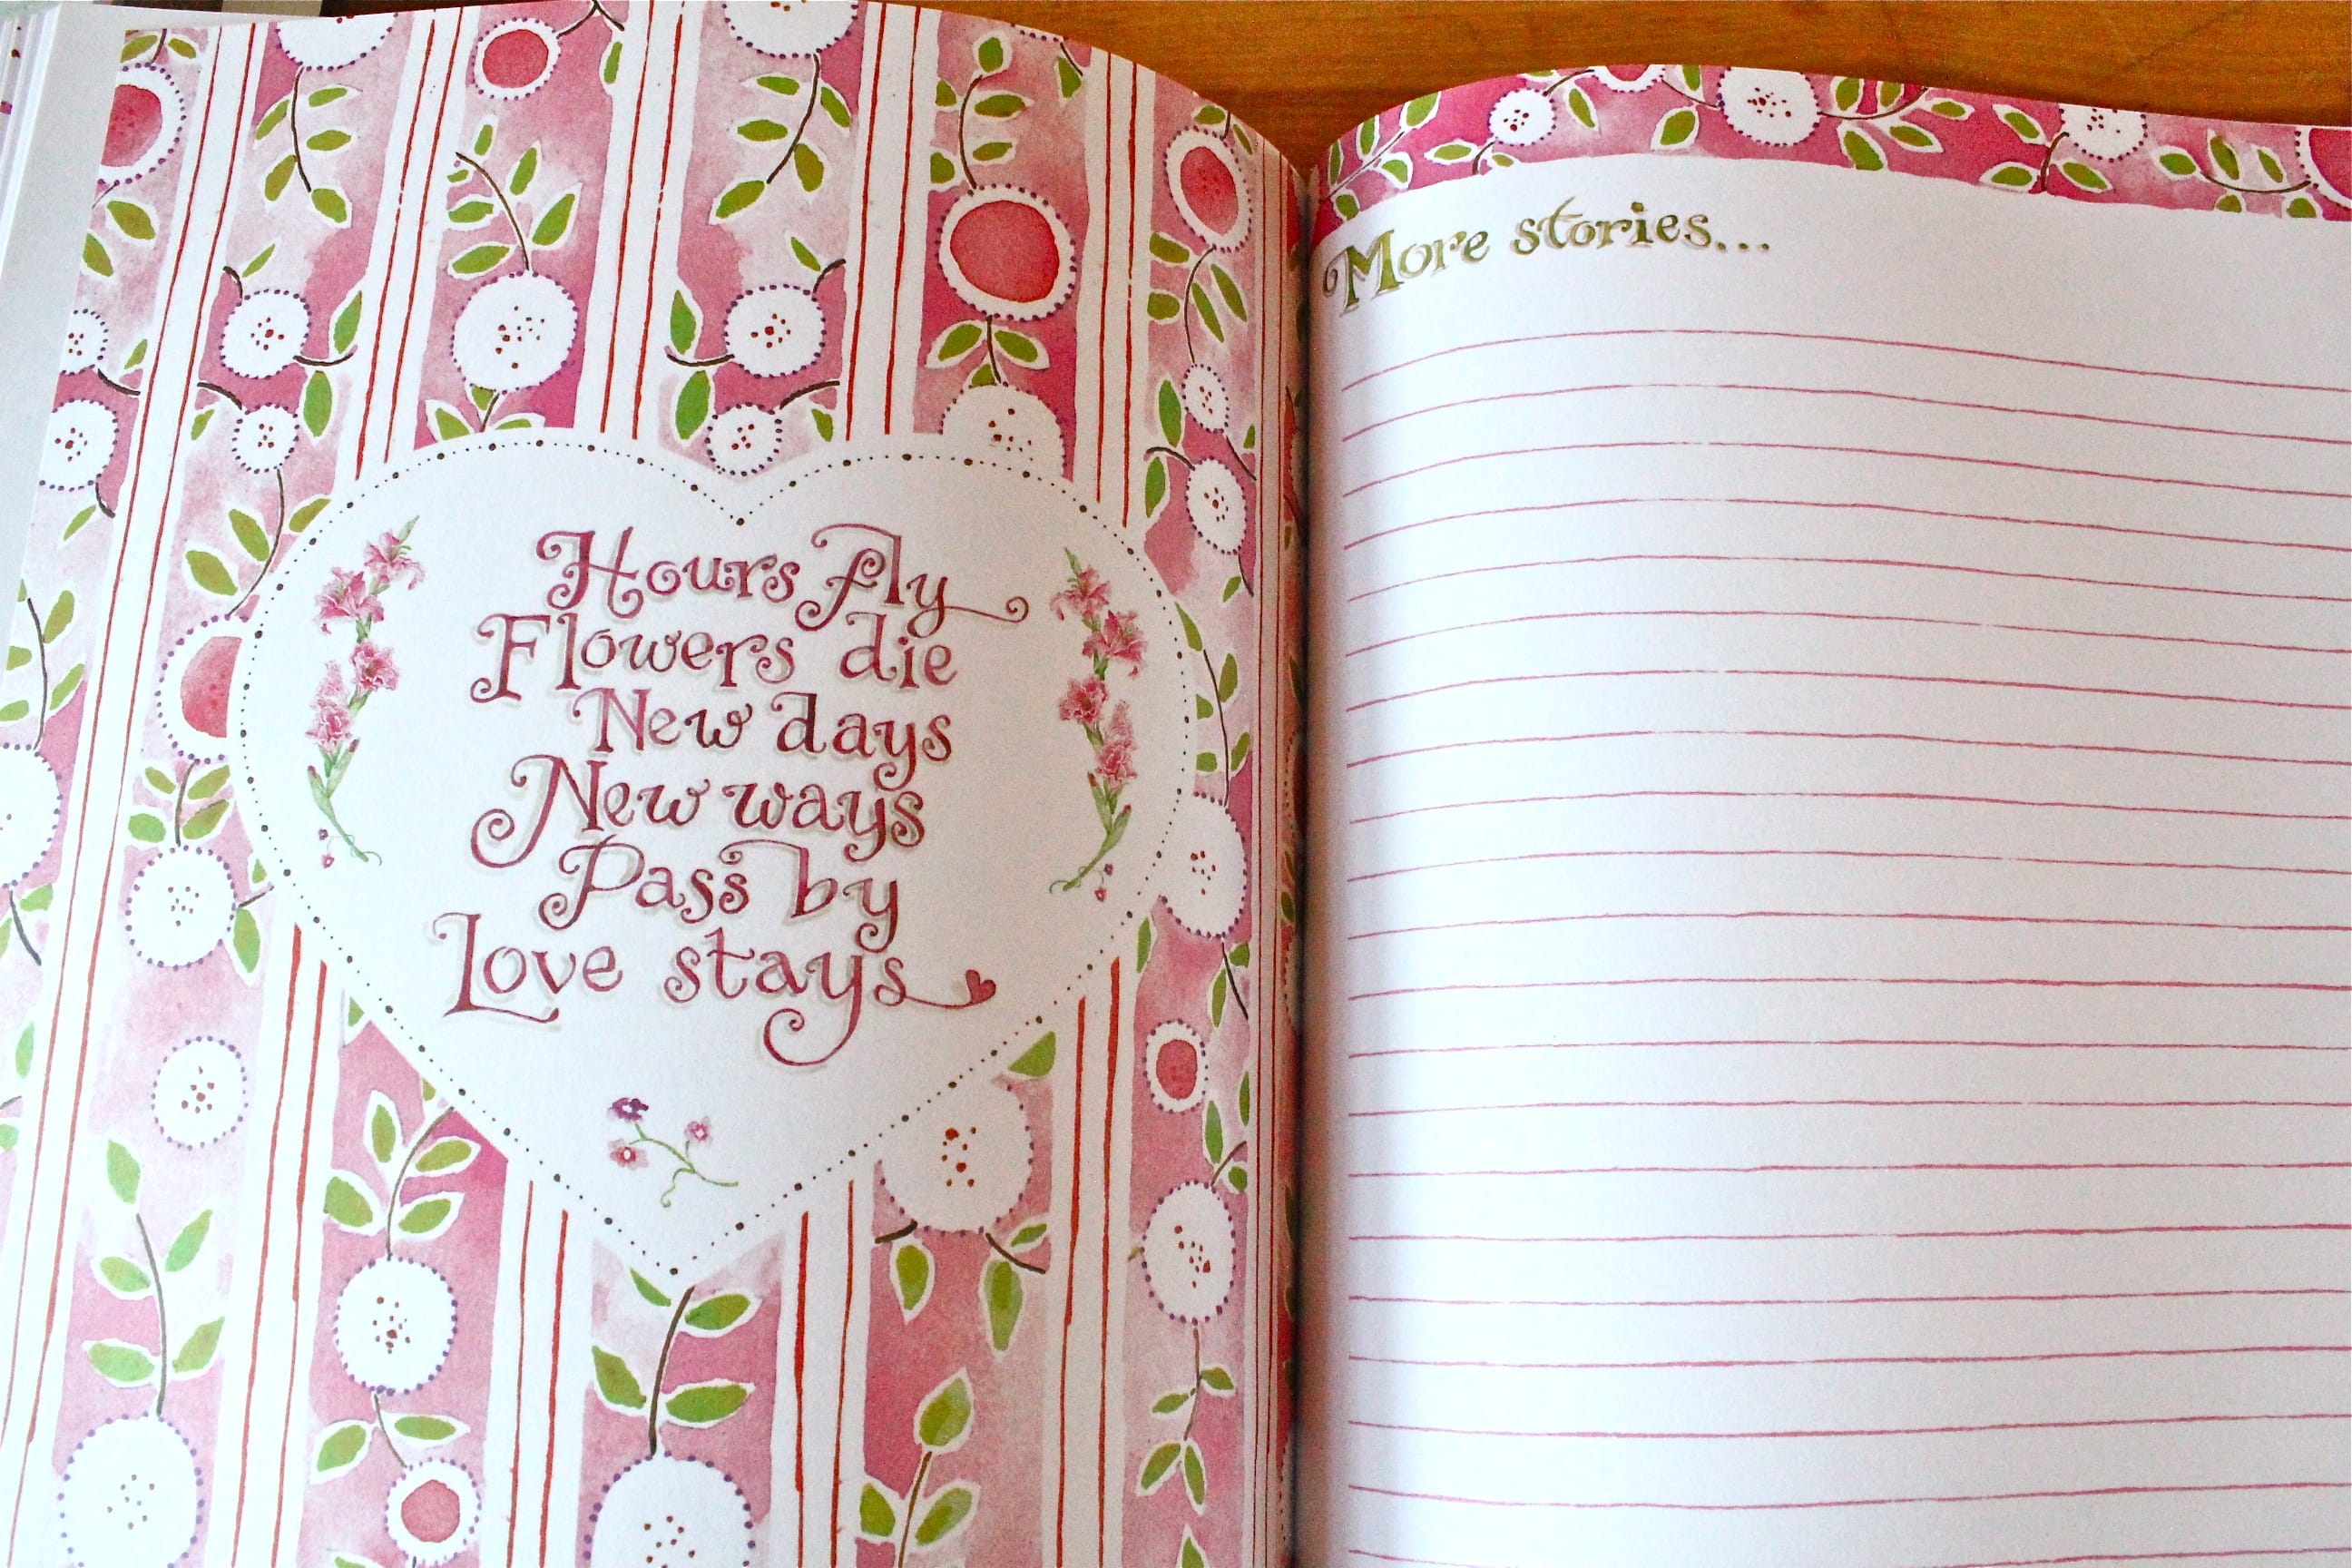 Hours fly
Flowers die
New days
New ways
Pass by
Love stays
More stories...